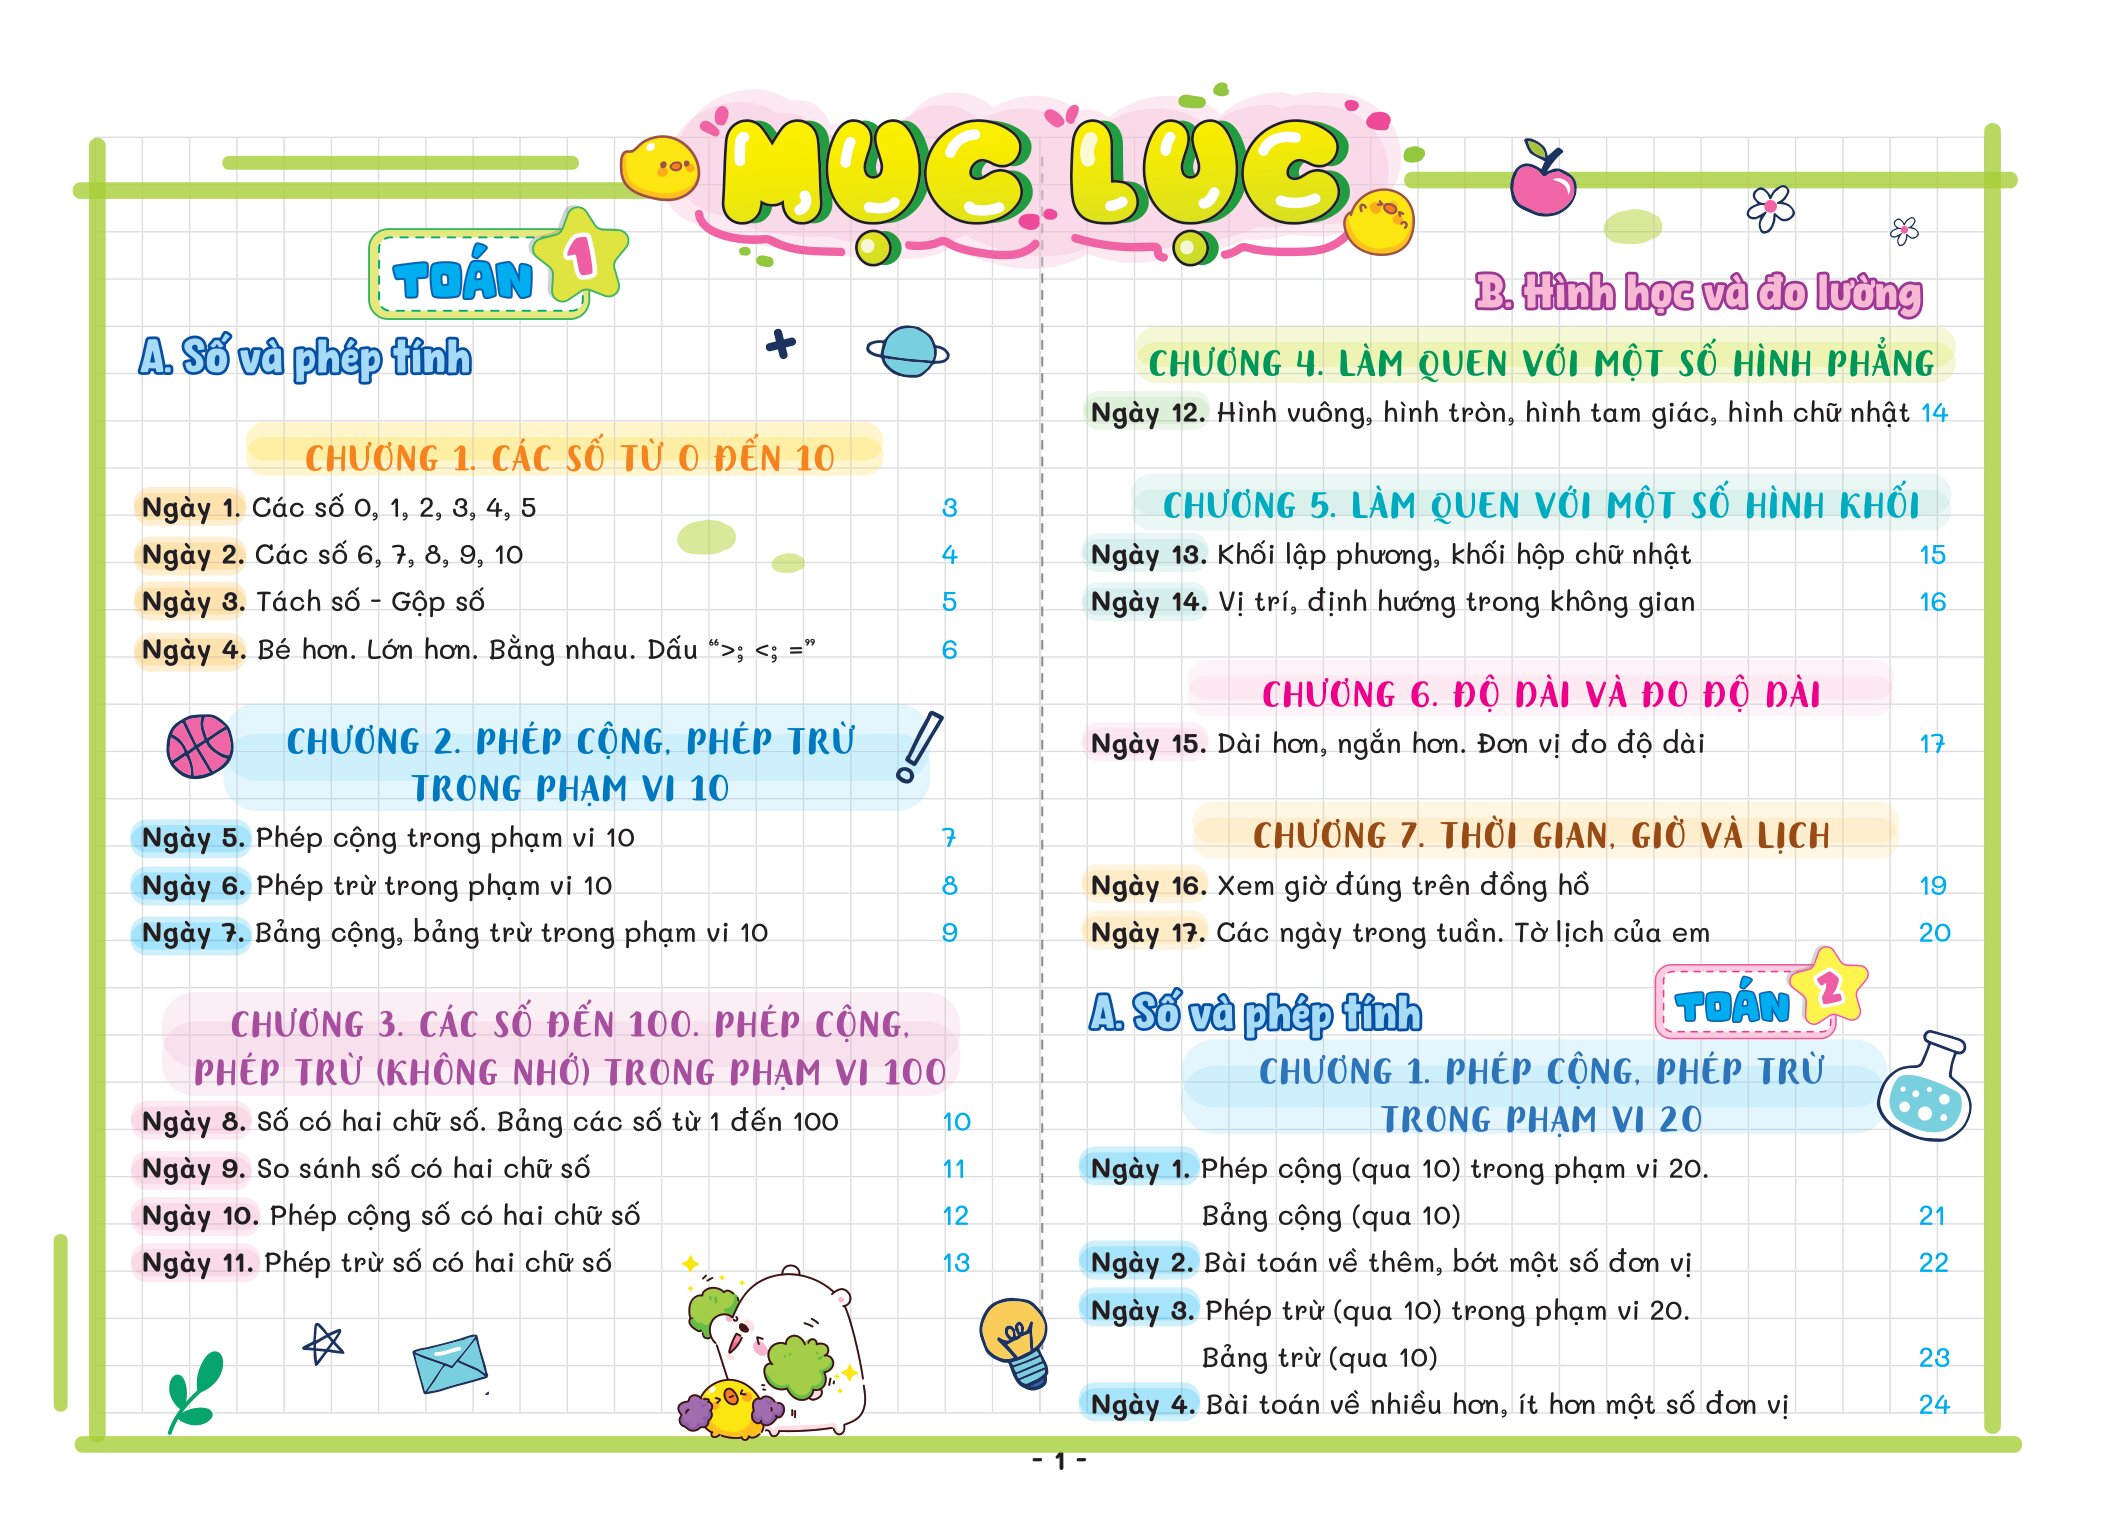 MỤC LỤC
TOÁN 1
A. Số và phép tính
CHƯƠNG 1. CÁC SỐ TỪ 0 ĐẾN 10
Ngày 1. Các số 0, 1, 2, 3, 4, 5 3
Ngày 2. Các số 6, 7, 8, 9, 10 4
Ngày 3. Tách số - Gộp số 5
Ngày 4. Bé hơn. Lớn hơn. Bằng nhau. Dấu “>; <; =” 6
CHƯƠNG 2. PHÉP CỘNG, PHÉP TRỪ
TRONG PHẠM VI 10
Ngày 5. Phép cộng trong phạm vi 10 7
Ngày 6. Phép trừ trong phạm vi 10 8
Ngày 7. Bảng cộng, bảng trừ trong phạm vi 10 9
CHƯƠNG 3. CÁC SỐ ĐẾN 100. PHÉP CỘNG,
PHÉP TRỪ (KHÔNG NHỚ) TRONG PHẠM VI 100
Ngày 8. Số có hai chữ số. Bảng các số từ 1 đến 100 10
Ngày 9. So sánh số có hai chữ số 11
Ngày 10. Phép cộng số có hai chữ số 12
Ngày 11. Phép trừ số có hai chữ số 13
B. Hình học và đo lường
CHƯƠNG 4. LÀM QUEN VỚI MỘT SỐ HÌNH PHẲNG
Ngày 12. Hình vuông, hình tròn, hình tam giác, hình chữ nhật 14
CHƯƠNG 5. LÀM QUEN VỚI MỘT SỐ HÌNH KHỐI
Ngày 13. Khối lập phương, khối hộp chữ nhật 15
Ngày 14. Vị trí, định hướng trong không gian 16
CHƯƠNG 6. ĐỘ DÀI VÀ ĐO ĐỘ DÀI
Ngày 15. Dài hơn, ngắn hơn. Đơn vị đo độ dài 17
CHƯƠNG 7. THỜI GIAN, GIỜ VÀ LỊCH
Ngày 16. Xem giờ đúng trên đồng hồ 19
Ngày 17. Các ngày trong tuần. Tờ lịch của em 20
TOÁN 2
A. Số và phép tính
CHƯƠNG 1. PHÉP CỘNG, PHÉP TRỪ
TRONG PHẠM VI 20
Ngày 1. Phép cộng (qua 10) trong phạm vi 20.
Bảng cộng (qua 10) 21
Ngày 2. Bài toán về thêm, bớt một số đơn vị 22
Ngày 3. Phép trừ (qua 10) trong phạm vi 20.
Bảng trừ (qua 10) 23
Ngày 4. Bài toán về nhiều hơn, ít hơn một số đơn vị 24
- 1 -